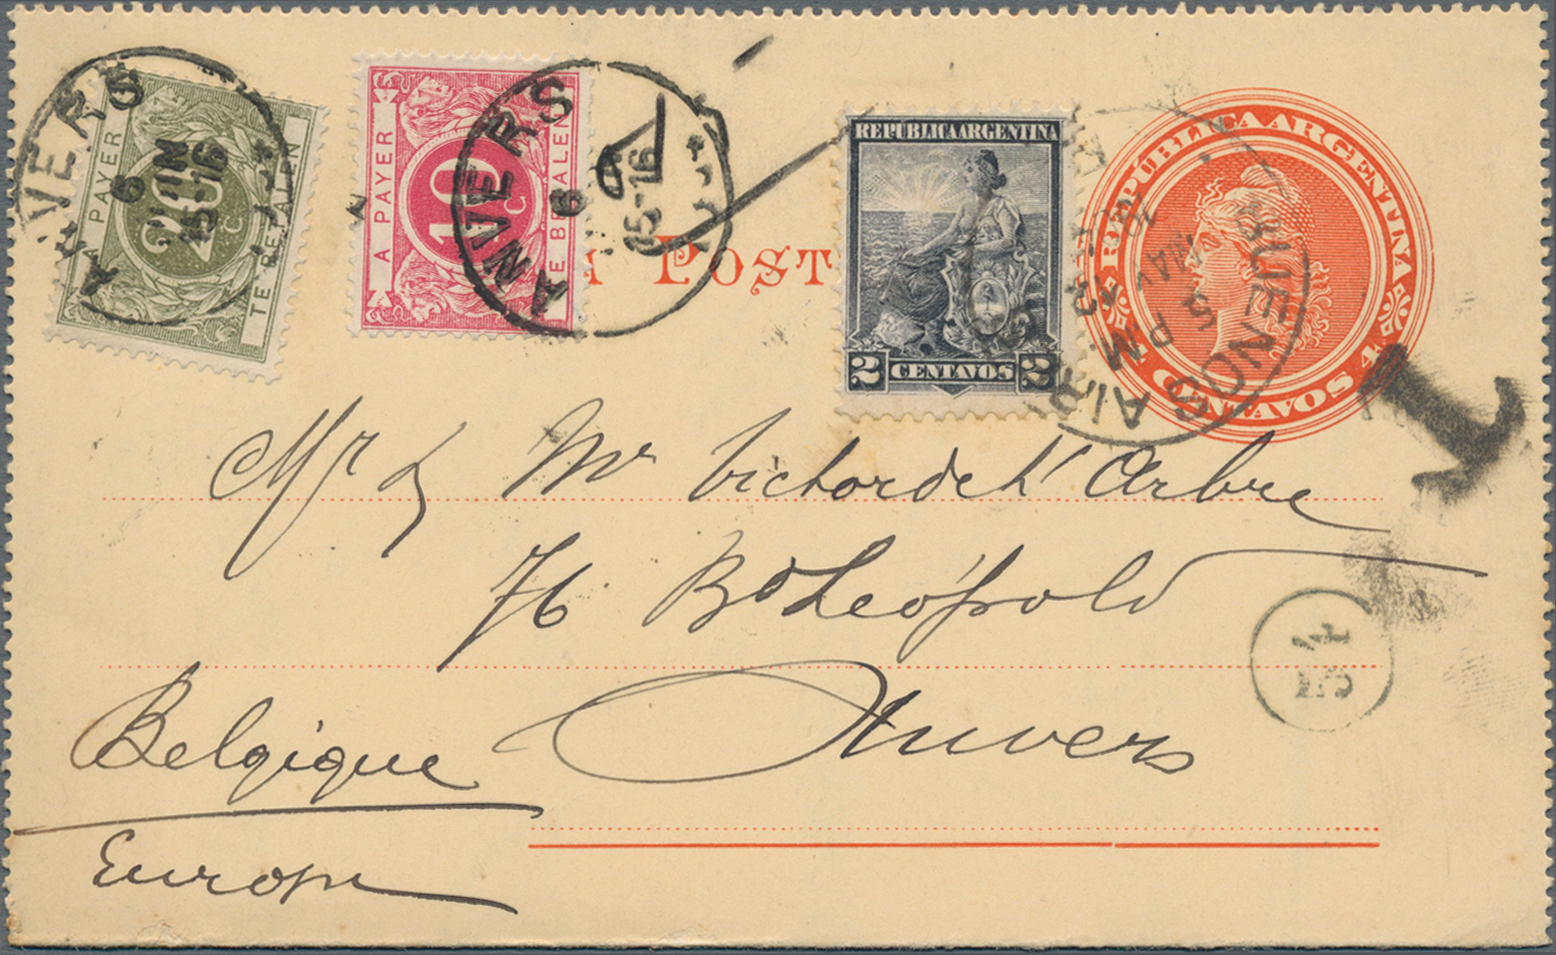 ANVERS
6
JUIN
15-16
A PAYER
20 C
TE BETALEN
A PAYER
10 C
TE BETALEN
ANVERS
6
15-16
POST
REPUBLICA ARGENTINA
2 CENTAVOS 2
REPÚBLICA ARGENTINA
4 CENTAVOS 4
BUENOS AIRES
MAY
13
5 P.M.
T
Mr & Mr Victor de l'Arbre
76 Bd Léopold
Anvers
Belgique
Europe